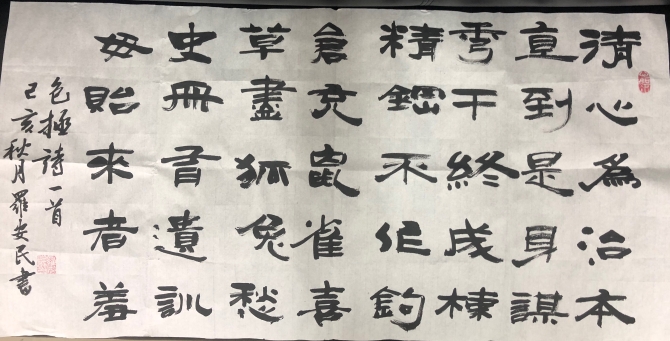 清心為治本
直到是身謀
秀干終成棟
精鋼不作鈎
倉充鼠雀喜
草盡狐兔愁
史冊有遺訓
毋貽來者羞
包拯詩一首
己亥秋月羅安民書